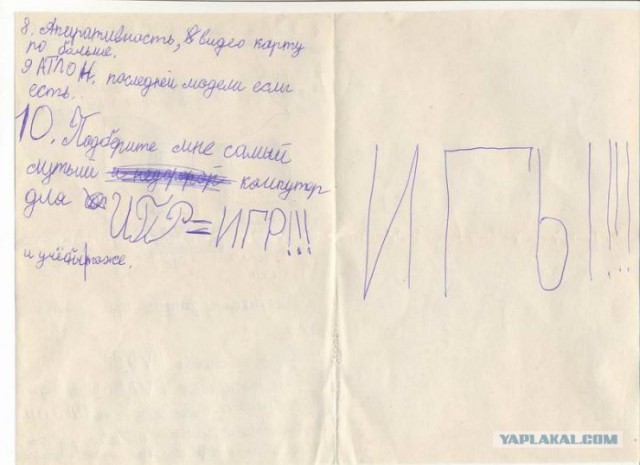 8. Аперативность, 8 видео карту
по больше.
9 АТЛОН. последней модели если
есть.
10. Подберите мне самый
мутьний компутер
для ИГР=ИГР!!!
и учёбы тоже.
ИГЫ!!!!
YAPLAKAL.COM